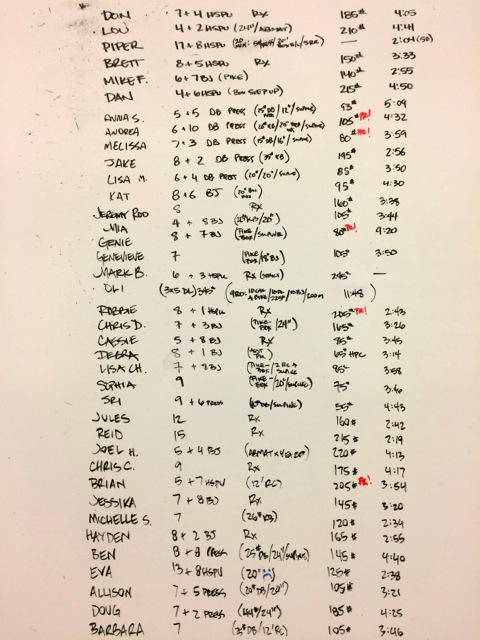 DON 7 + 4 HSPU Rx 185# 4:05
LOU 4 + 2 HSPU (24"/ABMAT) 210# 4:41
PIPER 17 + 8 HSPU — 2:04 (50)
BRETT 8 + 5 HSPU Rx 150# 3:33
MIKE F. 6 + 7 BJ (PIKE) 140# 2:55
DAN 4 + 6 HSPU (BOX STEP UP) 215# 4:50
ANNA S. 5 + 5 DB PRESS 53# 5:09
ANDREA 6 + 10 DB PRESS 105# PR! 4:32
MELISSA 7 + 3 DB PRESS (15#DB/16"/SUPINE) 80# PR! 3:59
JAKE 8 + 2 DB PRESS (35#KB) 195# 2:56
LISA M. 6 + 4 DB PRESS (20#/20"/SUPINE) 85# 3:50
KAT 8 + 6 BJ 95# 4:30
JEREMY ROO 8 Rx 160# 3:38
MIA 4 + 8 BJ 105# 3:44
GENIE 8 + 7 BJ (PIKE BOX/SUPINE) 80# PR! 4:20
GENEVIEVE 7 105# 3:50
MARK B. 6 + 3 HSPU 245# —
OLI (3x5 DL) 345# 11:48
ROBBIE 8 + 1 HSPU Rx 205# PR! 2:43
CHRIS D. 7 + 3 BJ (PIKE-BOX/24") 165# 3:26
CASSIE 5 + 8 BJ Rx 85# 3:45
DEBRA 8 + 1 BJ 65# HPC 3:14
LISA CH. 7 + 8 BJ 85# 3:58
SOPHIA 9 (PIKE-BOX/20"/SUPINE) 75# 3:46
SRI 9 + 6 PRESS 55# 4:43
JULES 12 Rx 160# 2:42
REID 15 Rx 215# 2:19
JOEL H. 5 + 4 BJ 220# 4:13
CHRIS C. 9 Rx 175# 4:17
BRIAN 5 + 7 HSPU (12' RC) 205# PR! 3:54
JESSIKA 7 + 8 BJ Rx 145# 3:20
MICHELLE S. 7 (26# KB) 120# 2:34
HAYDEN 8 + 2 BJ Rx 165# 2:55
BEN 8 + 8 PRESS (25# DB/24"/SUPINE) 145# 4:40
EVA 13 + 8 HSPU (20") 125# 2:38
ALLISON 7 + 5 PRESS (20# DB/20") 105# 3:21
DOUG 7 + 2 PRESS (44#/24") 185# 4:25
BARBARA 7 (25# DB/12' RC) 105# 3:46